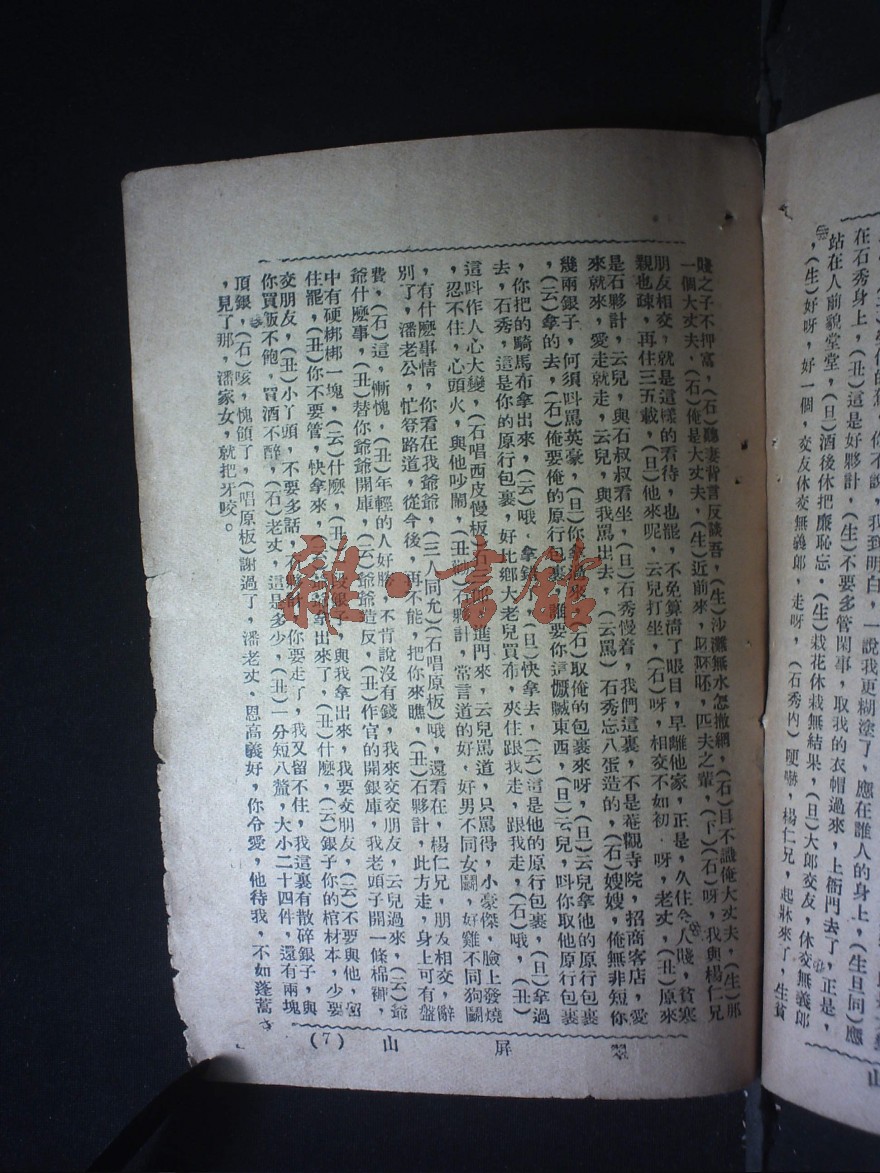 在石秀身上，(丑)這是好夥計，(生)不要多管閑事，取我的衣帽過來，上衙門去了，正是，
站在人前貌堂堂，(旦)酒後休把廉恥忘，(生)栽花休栽無結果，(旦)大郎交友，休交無義郎
，(生)好呀，好一個，交友休交無義郎，走呀，(石秀內)
賤之子不押富，(石)聽妻背言反談吾，(生)沙灘無水怎撤網，(石)目不識俺大丈夫，(生)那
一個大丈夫，(石)俺是大丈夫，(生)近前來，呸呸呸，匹夫之輩，(下)(石)呀，我與楊仁兄
朋友相交，就是這樣的看待，也罷，不免算清了賬目，早離他家，正是，久住令人賤，貧寒
親也疎，再住三五載，(旦)他來呢，云兒打坐，(石)呀，相交不如初，呀，老丈，(丑)原來
是石夥計，云兒，與石叔叔看坐，(旦)石秀慢着，我們這裏，不是菴觀寺院，招商客店，愛
來就來，愛走就走，云兒，與我罵出去，(云罵)石秀忘八蛋造的，(石)嫂嫂，俺無非短你
幾兩銀子，何須呌罵英豪，(旦)你拿過來，(石)取俺的包裹來呀，(旦)云兒拿他的原行包裹
，(云)拿的去，(石)俺要俺的原行包裹，誰要你這贓東西，(旦)云兒，呌你取他原行包裹
，你把的騎馬布拿出來，(云)哦，拿錯，(旦)快拿去，(云)這是他的原行包裹，(旦)拿過
去，石秀，這是你的原行包裹，好北鄉大老兒買布，夾住跟我走，跟我走，(石)哦，(丑)
這呌作人心大變，(石唱西皮慢板)石三郎，進門來，云兒罵道，只罵得，小豪傑，臉上發燒
，忍不住，心頭火，與他吵鬧，(丑唱)石夥計，常言道的好，好男不同女鬬，好雞不同狗鬬
，有什麽事情，你看在我爺爺，(三人同允)(石唱原板)哦，還看在，楊仁兄，朋友相交，辭
別了，潘老公，忙答路道，從今後，再不能，把你來瞧，(丑)石夥計，此方走，身上可有盤
費，(石)這，慚愧，(丑)年輕的人好勝，不肯說沒有錢，我來交交朋友，云兒過來，(云)爺
爺什麽事，(丑)替你爺爺開庫，(云)爺爺造反，(丑)作官的開銀庫，我老頭子開一條棉褲，
中有硬梆梆一塊，(云)什麽，(丑)沒銀子，與我拿出來，我要交朋友，(云)不要與他，留
住罷，(丑)你不要管，快拿來，(云)爺爺拿出來了，(丑)什麽，(云)銀子你的棺材本，少要
交朋友，(丑)小丫頭，不要多話，石夥計，你要走了，我又留不住，我這裏有散碎銀子，與
你買飯不飽，買酒不醉，(石)老丈，這是多少，(丑)一分短八釐，大小二十四件，還有兩塊
頂銀，(石)咳，愧領了，(唱原板)謝過了，潘老丈、恩高義好，你令愛，他待我，不如蓬蒿
，見了那，潘家女，就把牙咬。
翠屏山
(7)